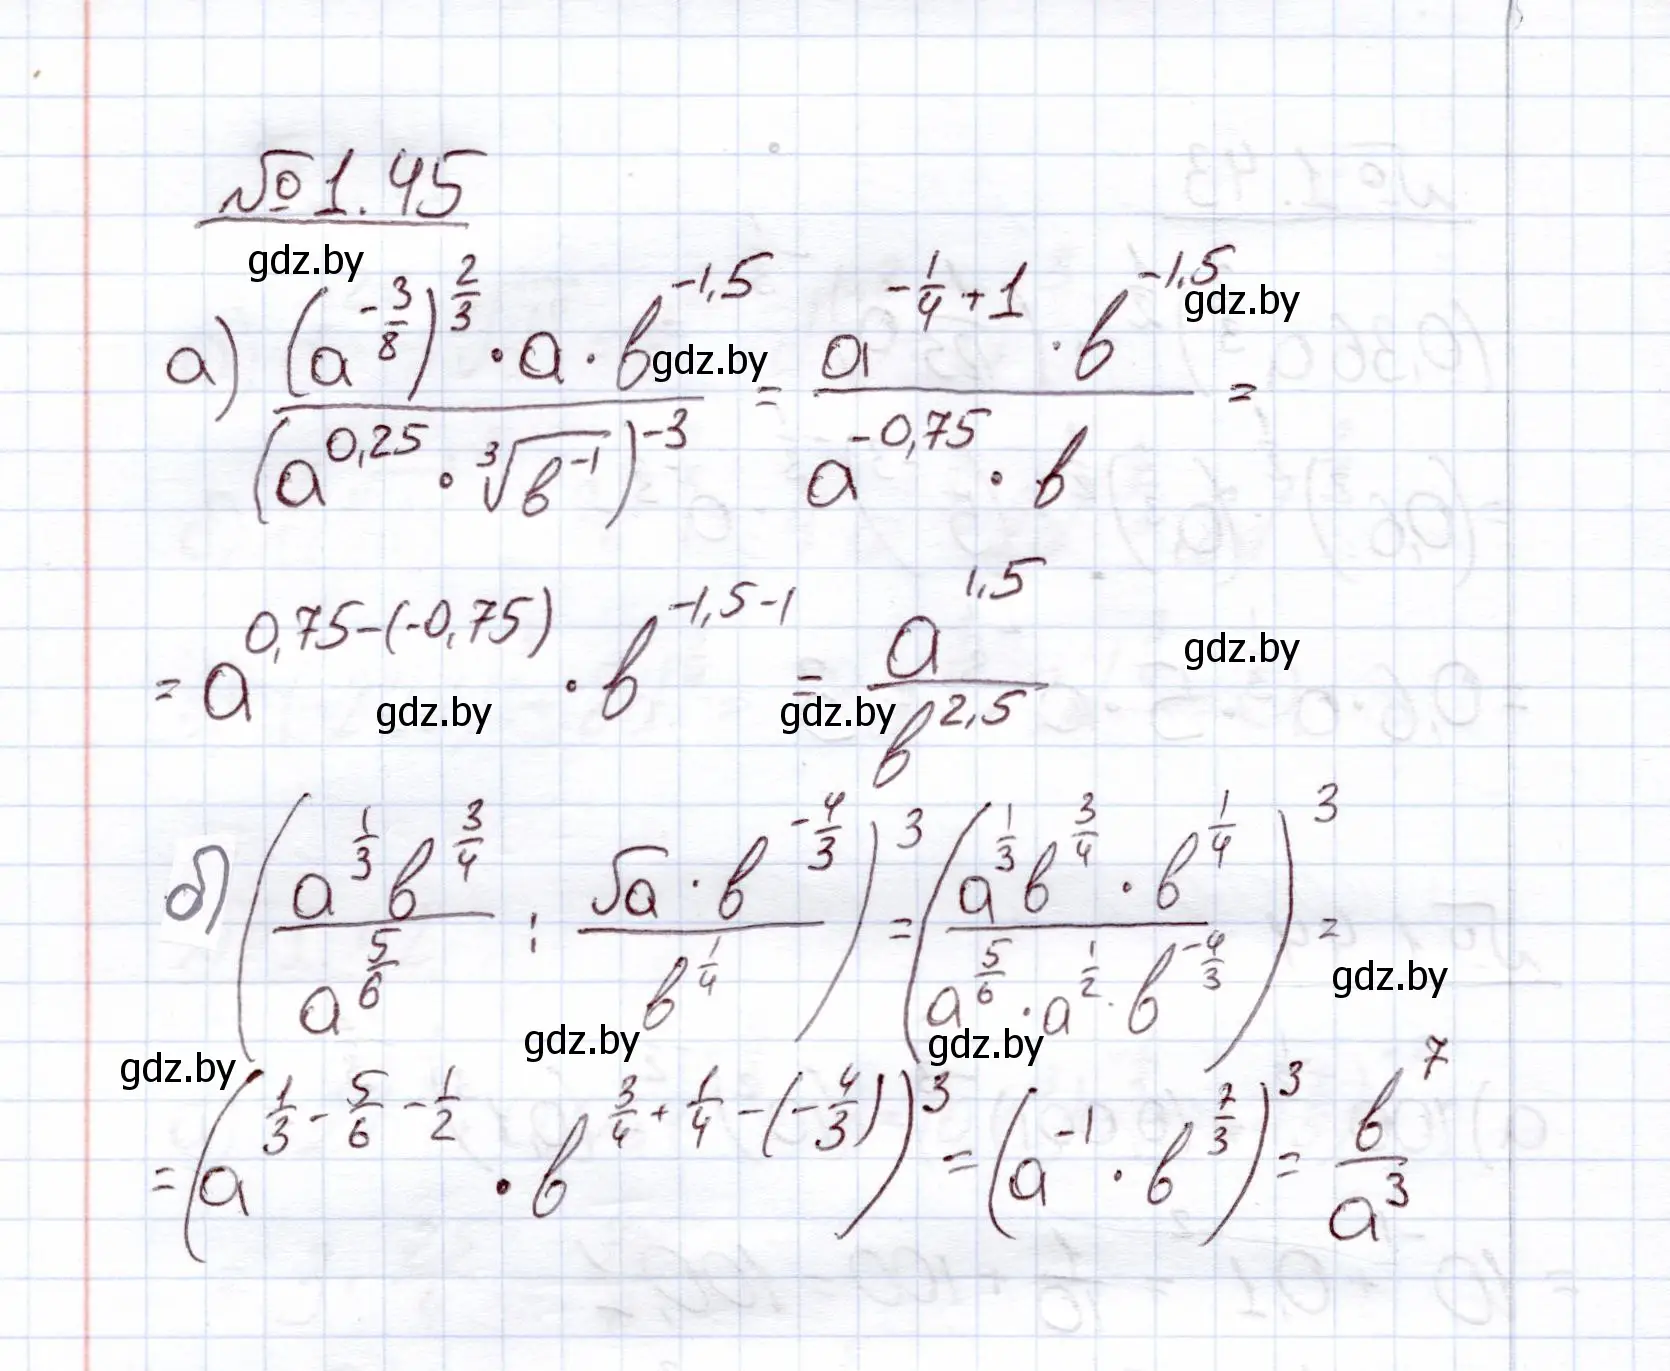 № 1.45
gdz.by
а) ((a^(-3/8))^(2/3) · a · b^(-1,5)) / (a^(0,25) · ∛(b^(-1)))^(-3) = (a^(-1/4 + 1) · b^(-1,5)) / (a^(-0,75) · b) =
gdz.by gdz.by
= a^(0,75-(-0,75)) · b^(-1,5-1) = a^(1,5) / b^(2,5)
gdz.by gdz.by gdz.by
б) ((a^(1/3) b^(3/4)) / a^(5/6) : (√a · b^(-4/3)) / b^(1/4))^3 = ((a^(1/3) b^(3/4) · b^(1/4)) / (a^(5/6) · a^(1/2) · b^(-4/3)))^3 =
gdz.by gdz.by gdz.by gdz.by
= (a^(1/3 - 5/6 - 1/2) · b^(3/4 + 1/4 - (-4/3)))^3 = (a^(-1) · b^(7/3))^3 = b^7 / a^3